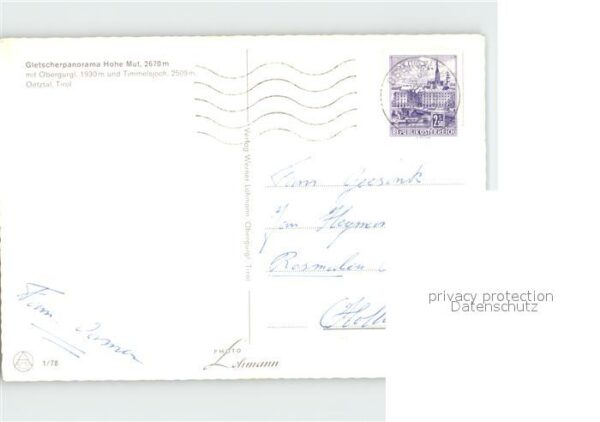 Gletscherpanorama Hohe Mut, 2670 m
mit Obergurgl, 1930 m und Timmelsjoch, 2509 m
Oetztal, Tirol
REPUBLIK ÖSTERREICH
Verlag Werner Lohmann, Obergurgl, Tirol
Fam
Rosmalen
Holl
Fam.
1/78
PHOTO
Lohmann
privacy protection
Datenschutz